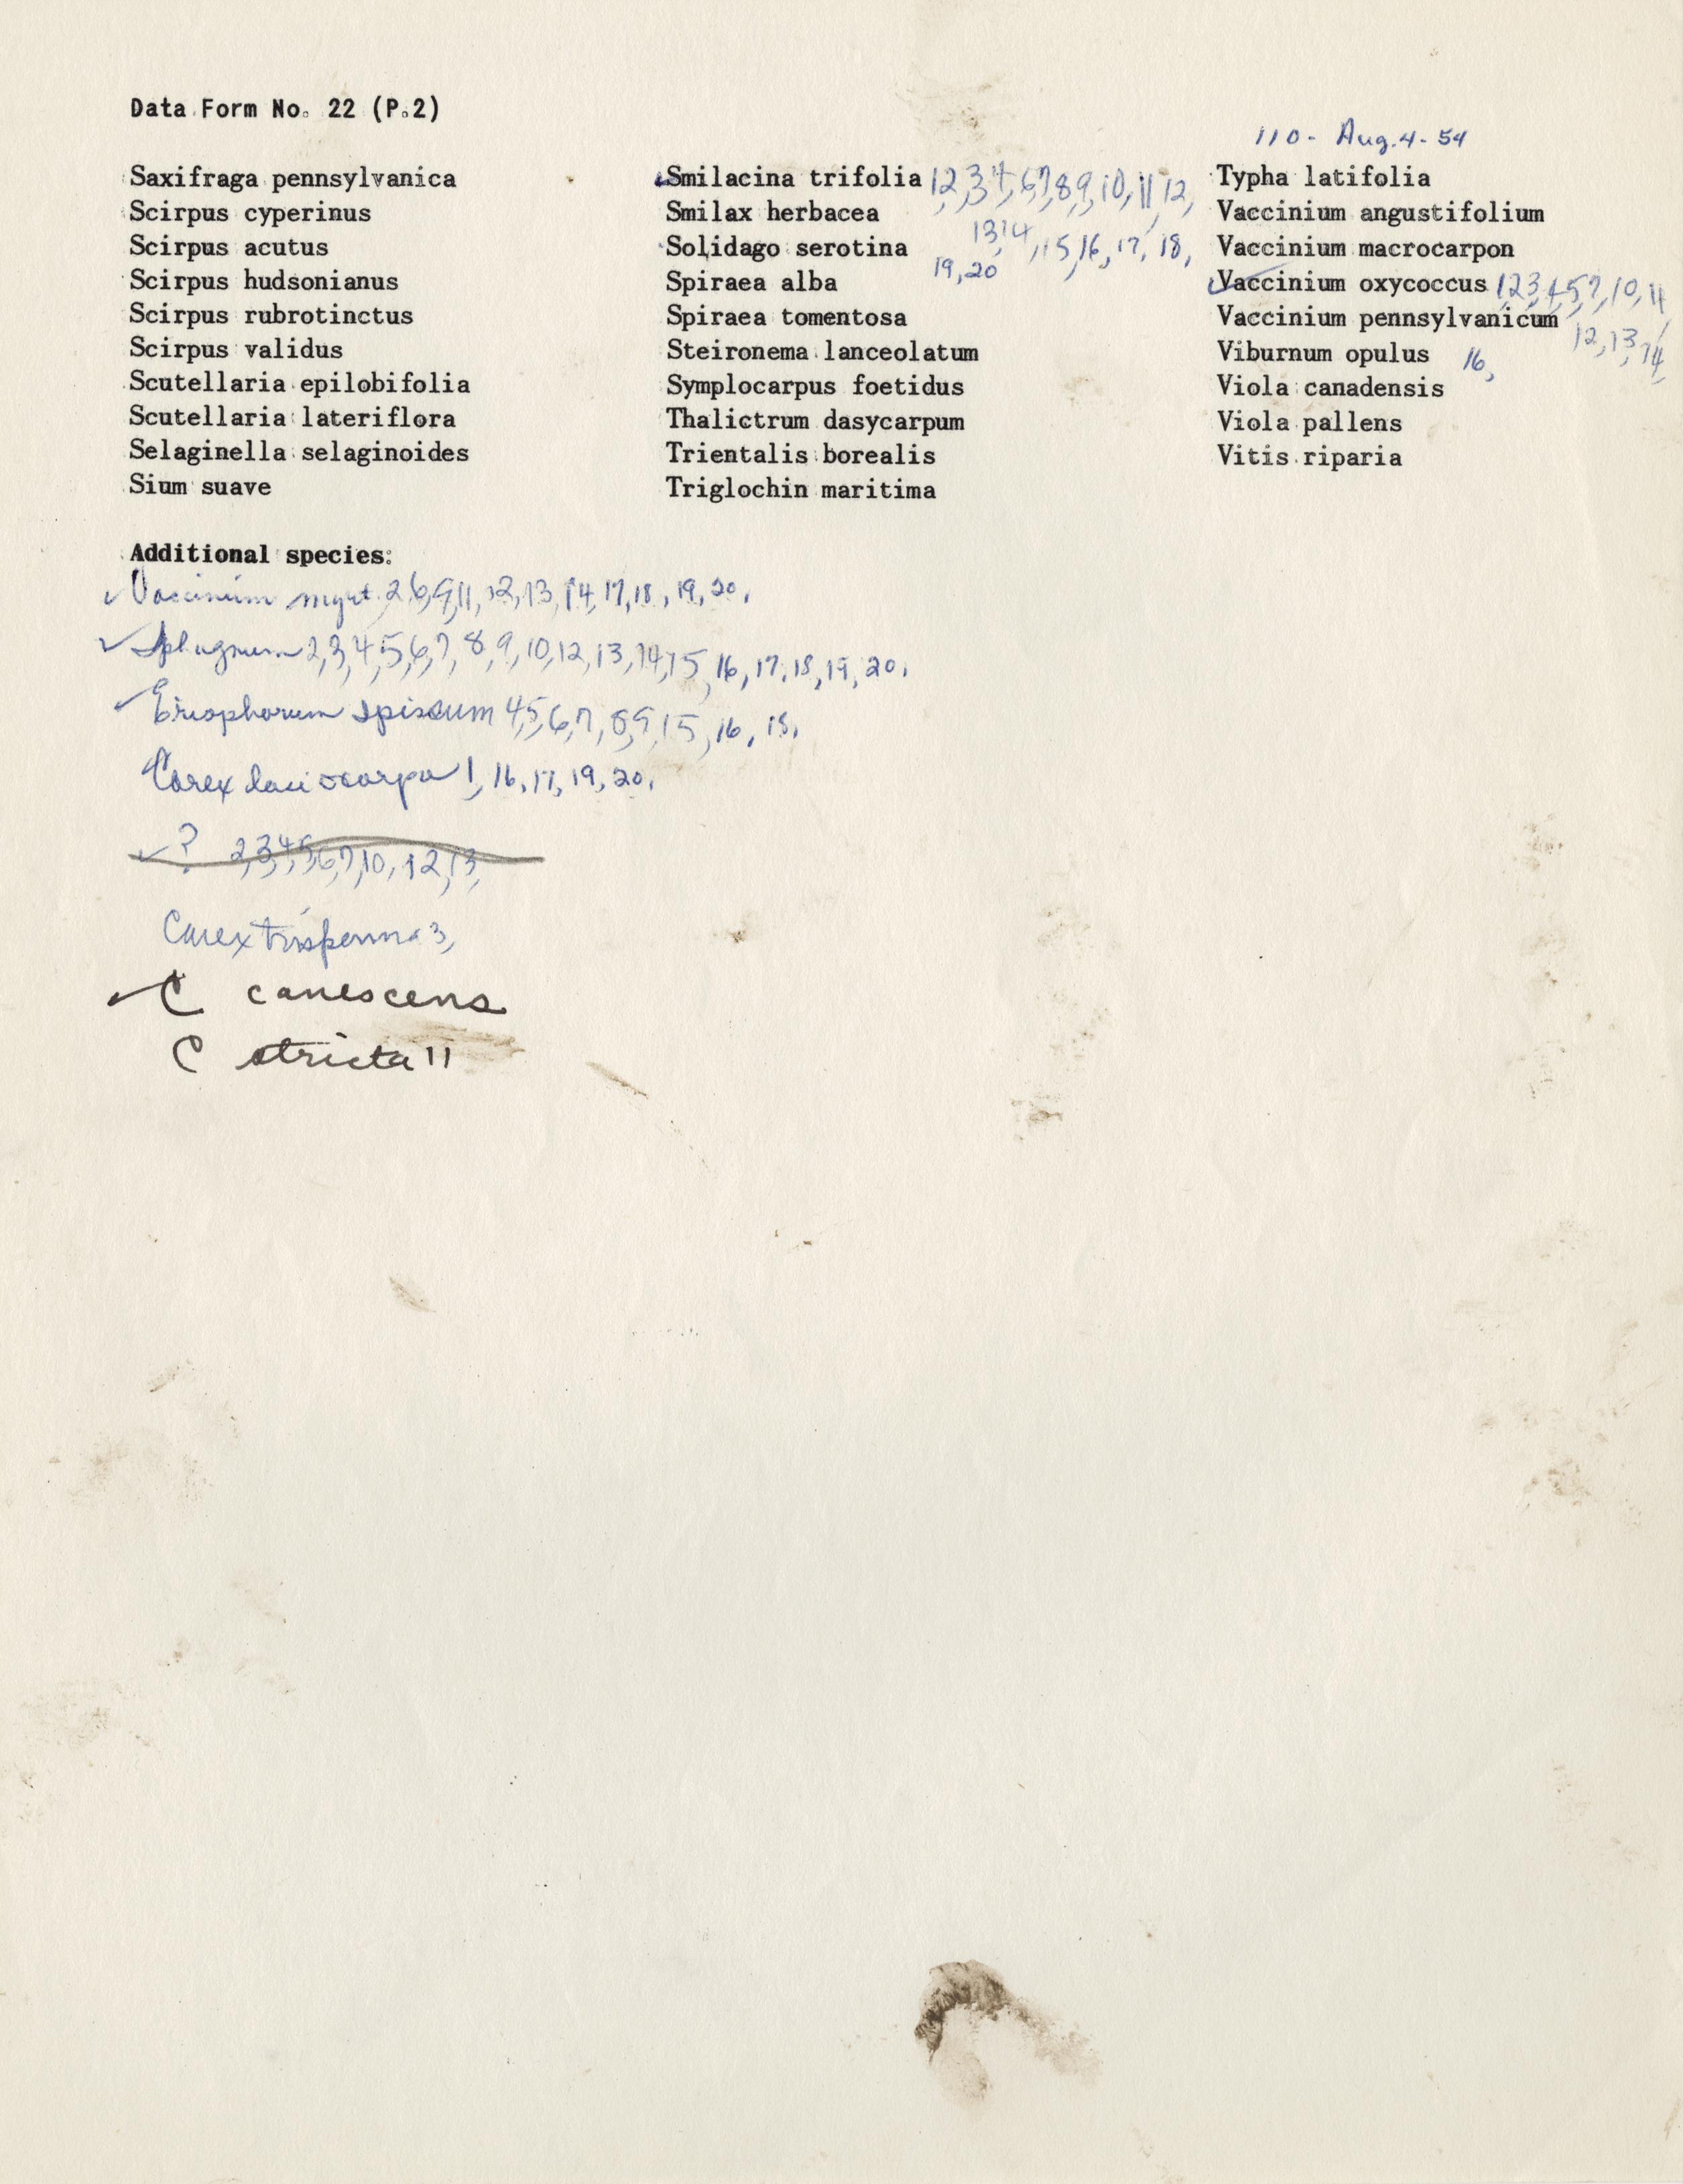 Data Form No. 22 (P.2)
110- Aug. 4- 54
Saxifraga pennsylvanica
Scirpus cyperinus
Scirpus acutus
Scirpus hudsonianus
Scirpus rubrotinctus
Scirpus validus
Scutellaria epilobifolia
Scutellaria lateriflora
Selaginella selaginoides
Sium suave
Smilacina trifolia 1,2,3,4,6,7,8,9,10,11,12,
13,14,15,16,17,18,
19,20
Smilax herbacea
Solidago serotina
Spiraea alba
Spiraea tomentosa
Steironema lanceolatum
Symplocarpus foetidus
Thalictrum dasycarpum
Trientalis borealis
Triglochin maritima
Typha latifolia
Vaccinium angustifolium
Vaccinium macrocarpon
Vaccinium oxycoccus 1,2,3,4,5,7,10,11
12,13,14,
16,
Vaccinium pennsylvanicum
Viburnum opulus
Viola canadensis
Viola pallens
Vitis riparia
Additional species:
✓ Vaccinium myrt. 2,6,9,11,12,13,14,17,18,19,20.
✓ Sphagnum 2,3,4,5,6,7,8,9,10,12,13,14,15,16,17,18,19,20.
✓ Eriophorum spissum 4,5,6,7,8,9,15,16,18,
Carex lasiocarpa 1,16,17,19,20.
✓ ? 2,3,4,5,6,7,10,12,13,
Carex trisperma 3,
✓ C canescens
C stricta 11